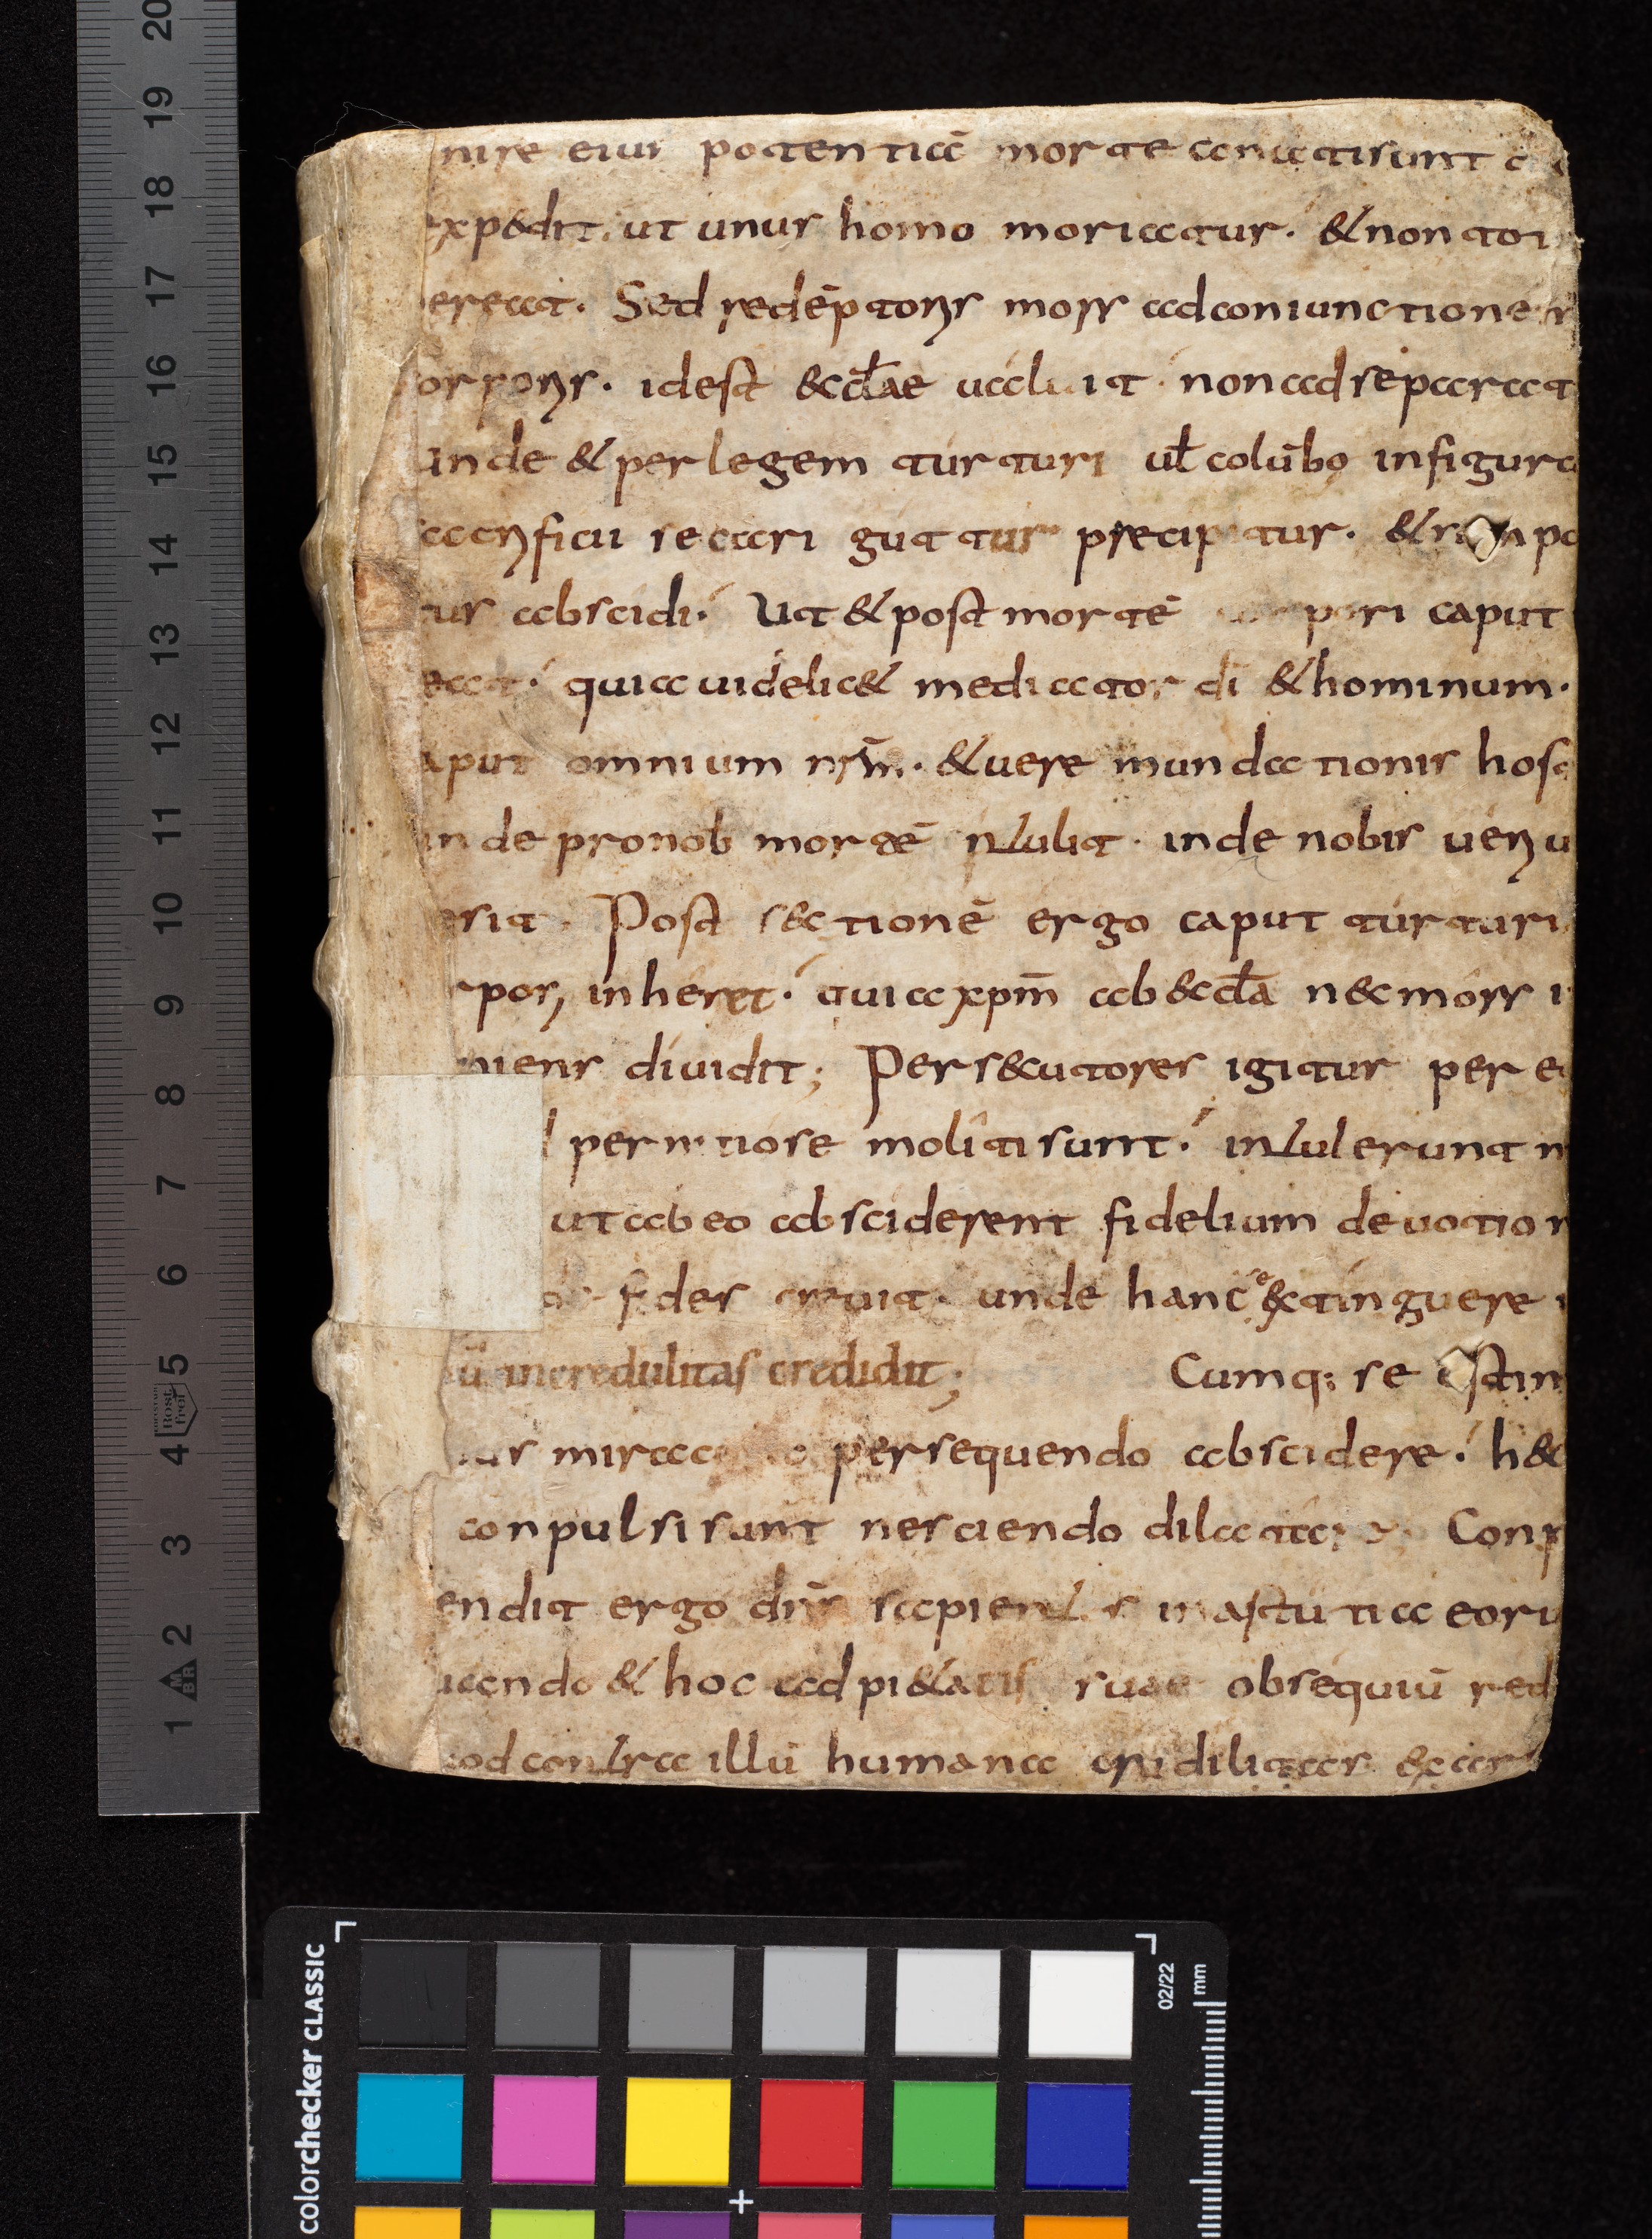 nire eius potentiā morte conati sunt
expedit. ut unus homo moriatur. & non tot
ereat. Sed redēptoris mors ad coniunctionē
orporis. idest &cƚae ualuit. non ad separat
unde & per legem turturi uƚ colūbo in figura
sacrificii secari guttur precipitur. & non po
tur abscidi. Ut & post mortē corpori caput
eat. quia uidelic& mediator dī & hominum.
aput omnium nrm̄. & uere mundationis host
inde pro nob mortē intulit. inde nobis ueri u
erit. Post s&ctionē ergo caput turturi
rpori inheret. quia xpm̄ ab &cƚa nec mors i
niens diuidit; Pers&cutores igitur per e
pernitiose moliti sunt. intulerunt m
ut ab eo absciderent fidelium deuotion
fides creuit. unde hanc e&tinguere
ū incredulitas credidit;
Cumq; se estim
mirac persequendo abscidere. h&c
conpulsi sunt nesciendo dilatare. Consp
endit ergo dn̄s sapientes in astutia eoru
uando & hoc ad pi&atis suae obsequiū red
od contra illū humana crudilitas &ar
20
19
18
17
16
15
14
13
12
11
10
9
8
7
6
5
4
3
2
1
MBR
colorchecker CLASSIC
02/22
mm